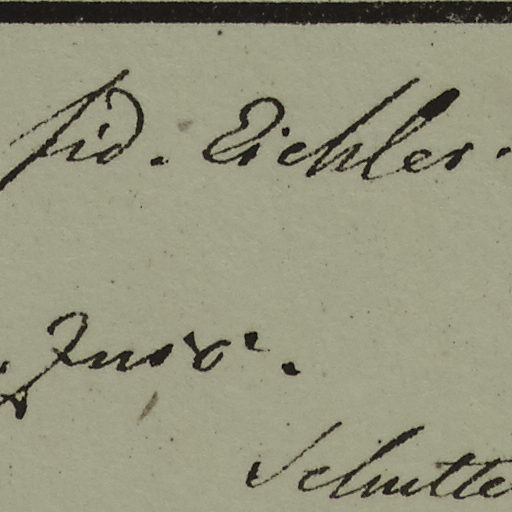 fid. Eichler.
Schutte